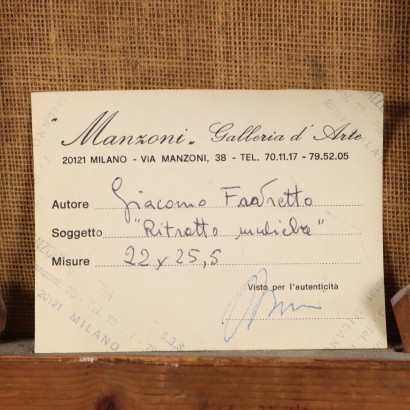 "Manzoni" Galleria d'Arte
20121 MILANO - VIA MANZONI, 38 - TEL. 70.11.17 - 79.52.05
Autore Giacomo Favretto
Soggetto "Ritratto muliebre"
Misure 22 x 25,5
Visto per l'autenticità
20121 MILANO